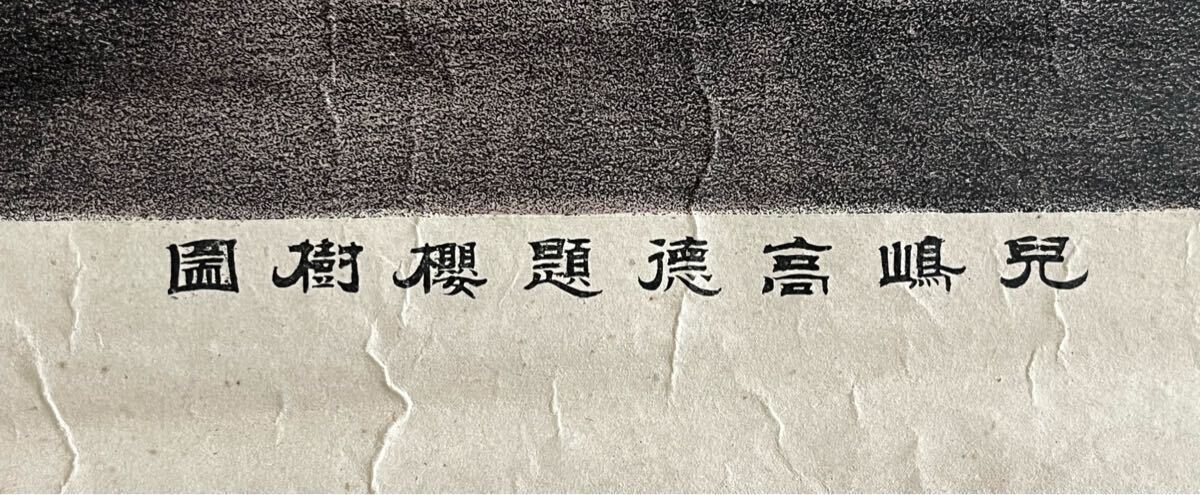 兒嶋高德題櫻樹圖